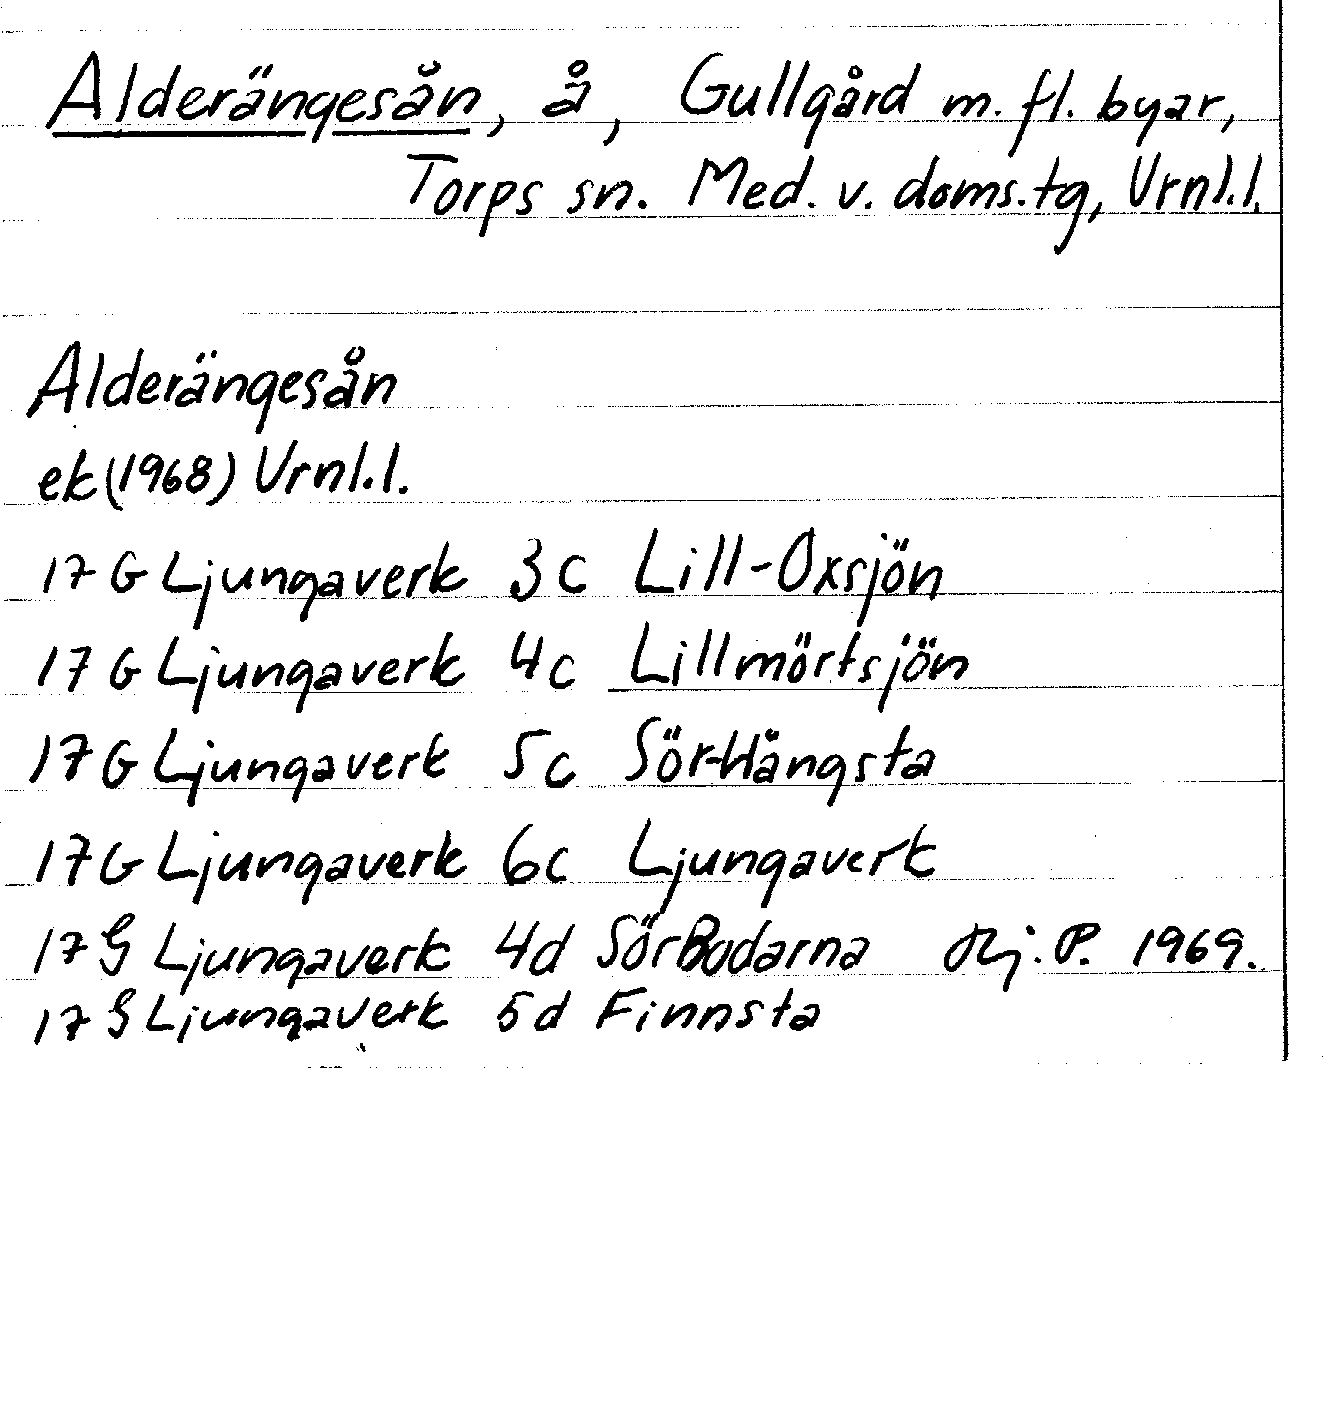 Alderängesån, å, Gullgård m. fl. byar,
Torps sn. Med. v. doms.tg, Vrnl.l.
Alderängesån
ek (1968) Vrnl.l.
17 G Ljungaverk 3c Lill-Oxsjön
17 G Ljungaverk 4c Lillmörtsjön
17 G Ljungaverk 5c Sör-Hångsta
17 G Ljungaverk 6c Ljungaverk
17 G Ljungaverk 4d SörBodarna P. 1969.
17 G Ljungaverk 5d Finnsta